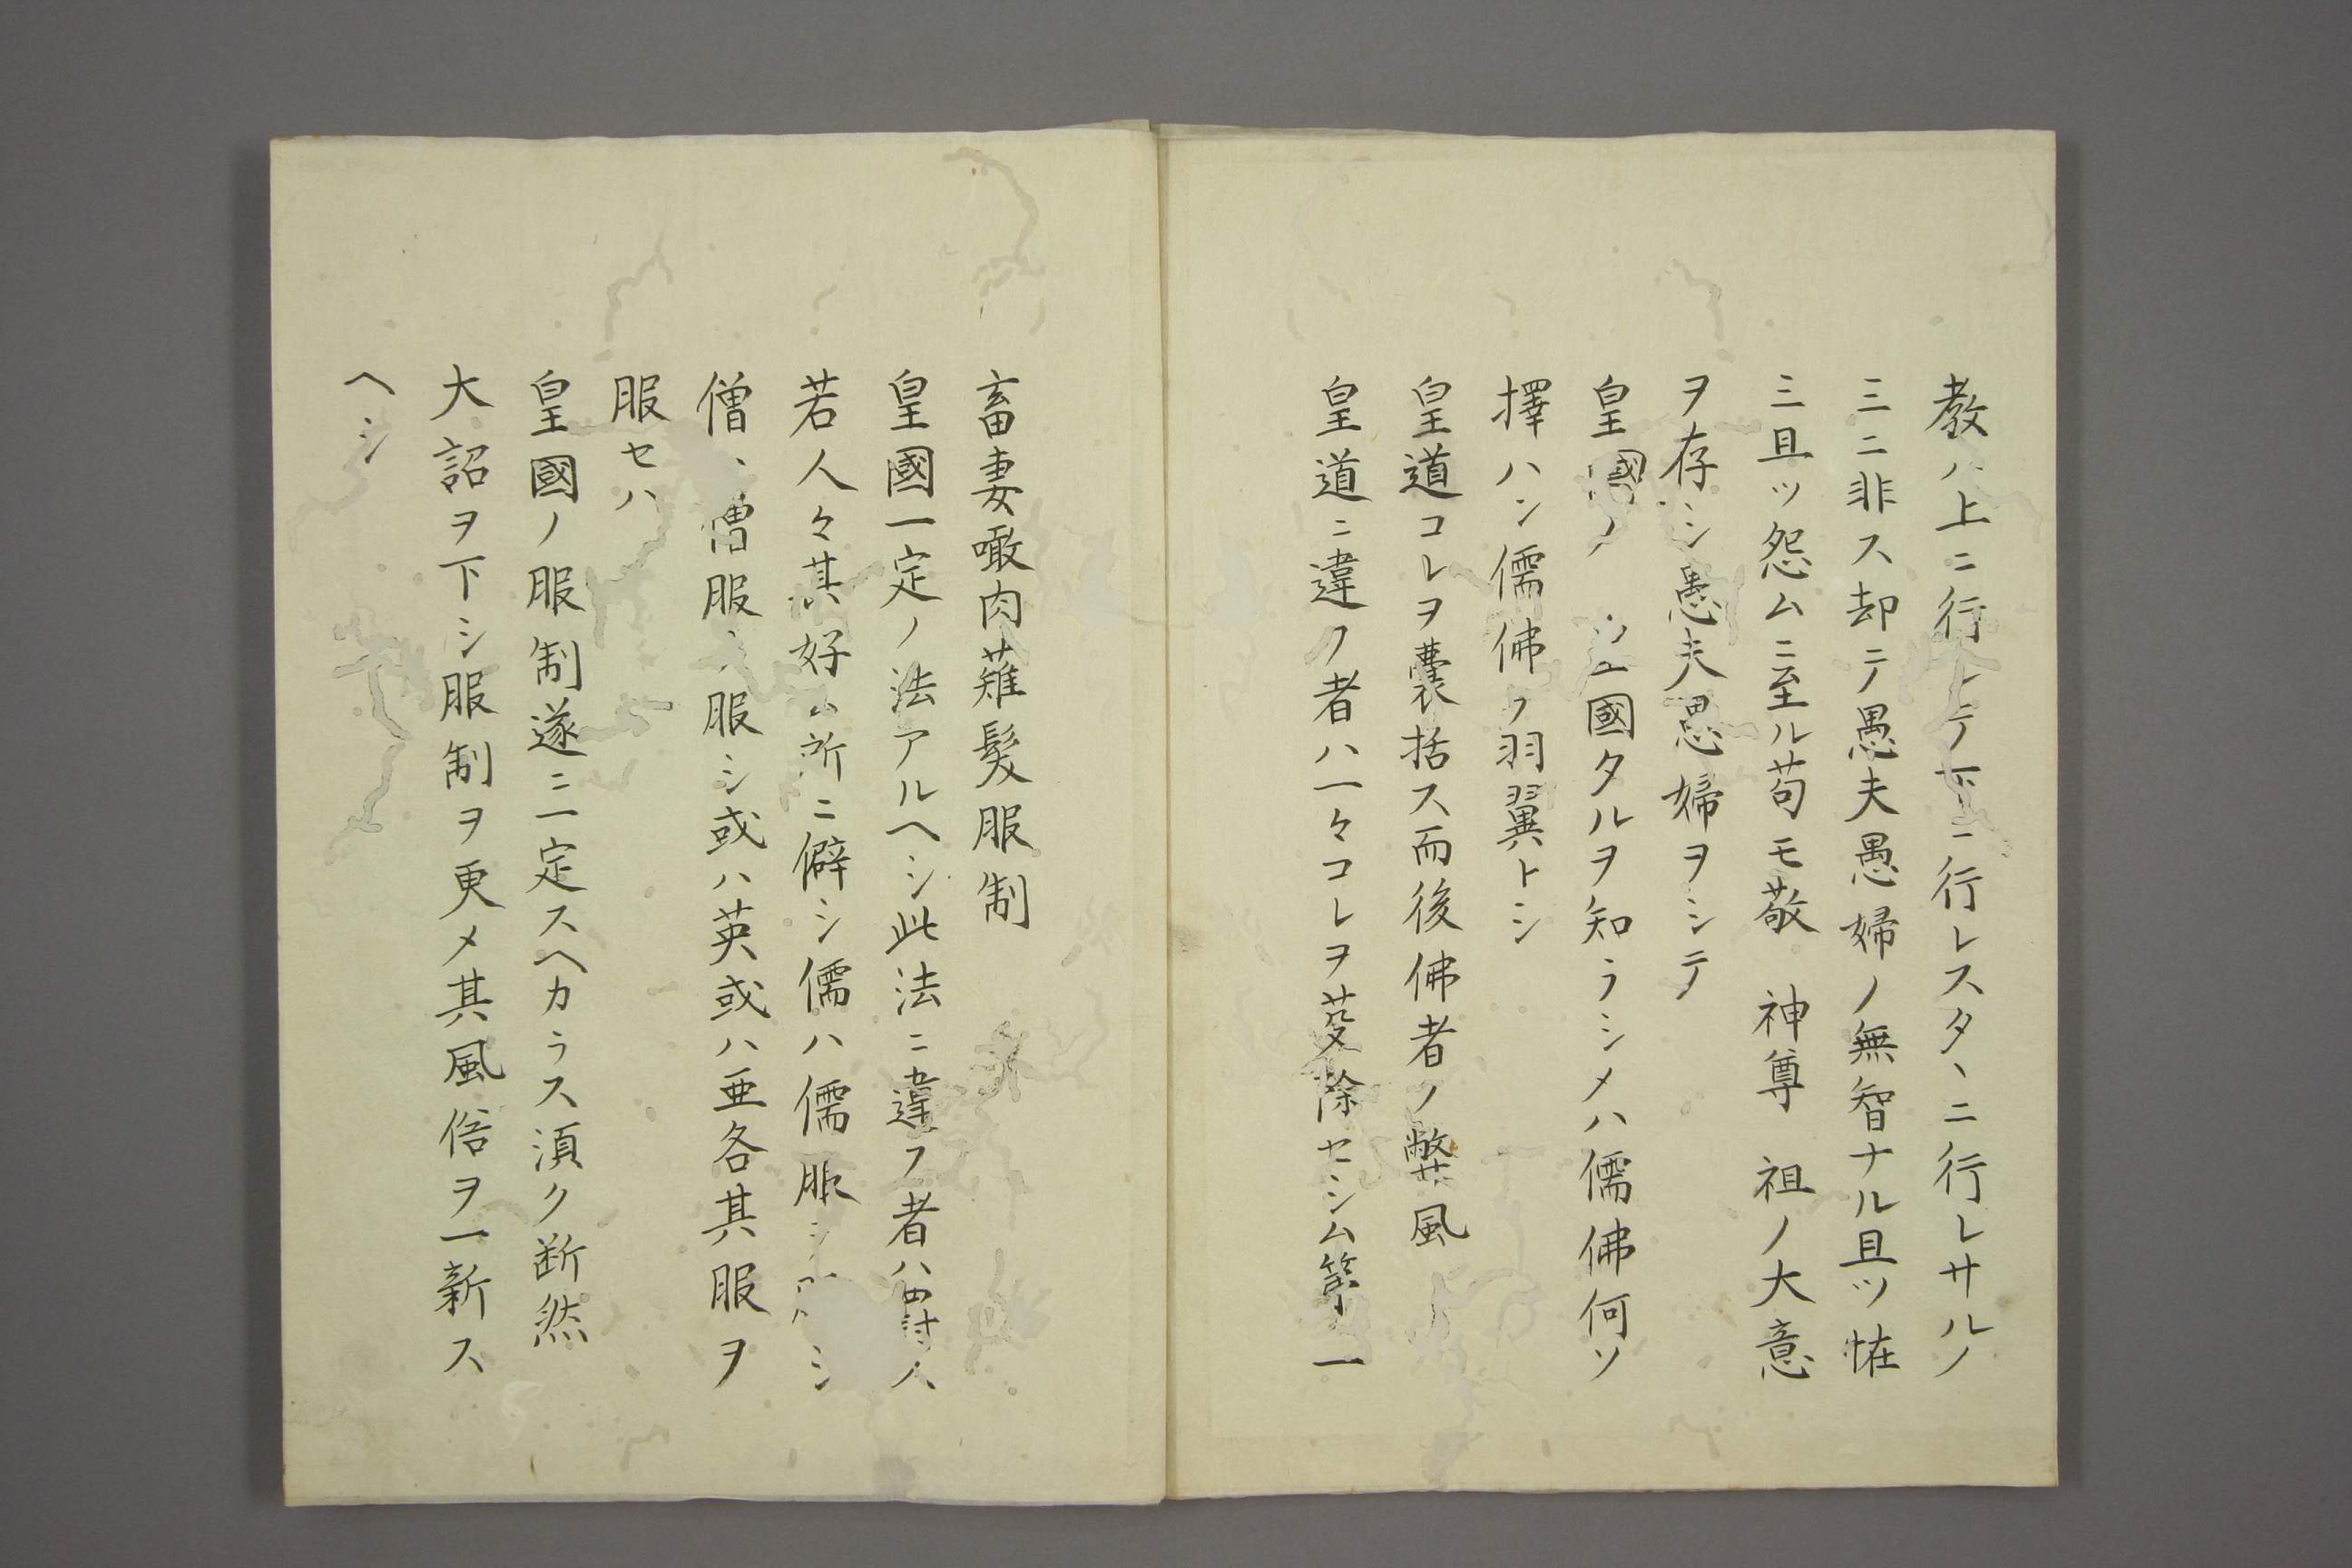 教ノ上ニ行レテ下ニ行レスタヽニ行レサルノ
ミニ非ス却テ愚夫愚婦ノ無智ナル且ツ恠
ミ且ツ怨ムニ至ル苟モ敬 神尊 祖ノ大意
ヲ存シ愚夫愚婦ヲシテ
皇國ノ 國タルヲ知ラシメハ儒佛何ソ
擇ハン儒佛ヲ羽翼トシ
皇道コレヲ囊括ス而後佛者ノ弊風
皇道ニ違フ者ハ一々コレヲ芟除セシム第一
畜妻噉肉薙髮服制
皇國一定ノ法アルヘシ此法ニ違フ者ハ
若人々其好ム所ニ僻シ儒ハ儒服シ
僧ハ僧服ヲ服シ或ハ英或ハ亜各其服ヲ
服セハ
皇國ノ服制遂ニ一定スヘカラス湏ク断然
大詔ヲ下シ服制ヲ更メ其風俗ヲ一新ス
ヘシ